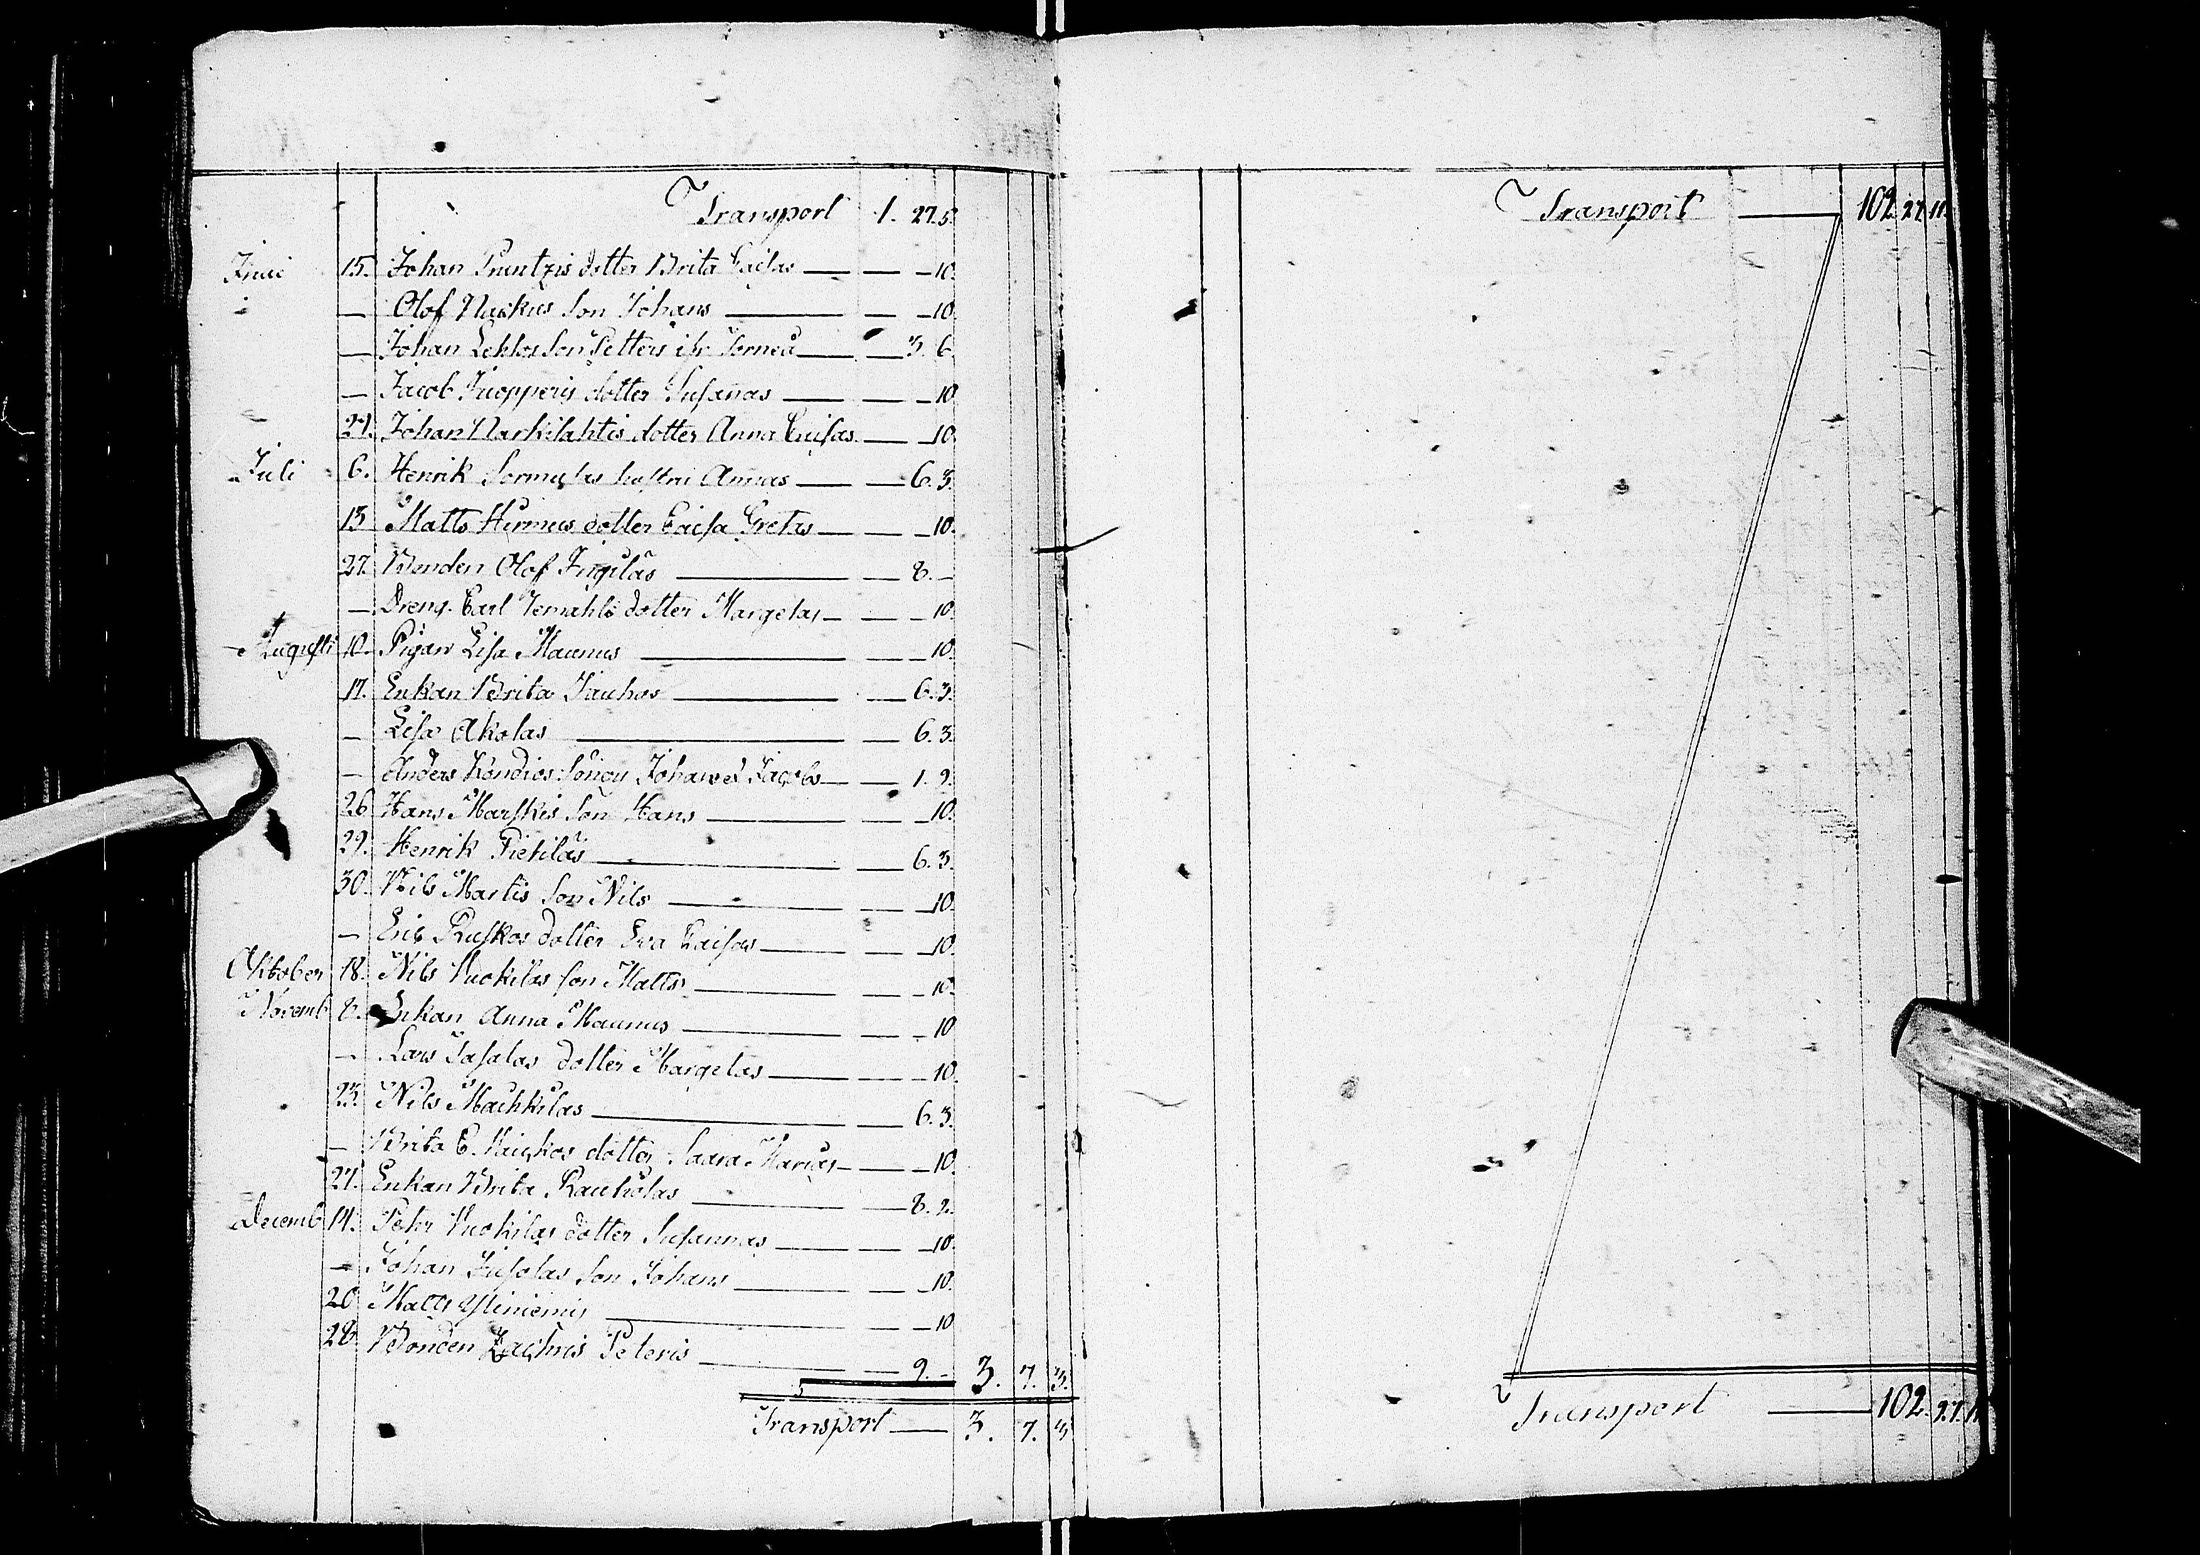 Transport 1. 27. 5.
Junii 15. Johan Pruntzis dotter Brita Caisas — — 10.
— Olof Naskus Son Johans — — 10.
— Johan Lehtos Son Petters ifr. Torneå — 3. 6.
— Jacob Juopperis dotter Susañas — — 10
29. Johan Narkilahtis dotter Anna Caisas — 10.
Juli 6. Henrik Sormulas hustru Annas — 6. 3.
13 Matts Hirmus dotter Caisa Gretas — — 10.
27. Bonden Olof — 8. —
— Dreng. Carl dotter Margetas — — 10.
Augusti 10. Pigan Lisa Maunus — — 10.
17. Enkan Brita Jauhos — 6. 3.
— Lisa Akolas — 6. 3.
— Anders Kondios Söner Johans & Jacobs — 1. 9.
26 Hans Marskis Son Hans — — 10.
29. Henrik Pietilas — 6. 3.
30. Nils Martis Son Nils — — 10.
— Eric Ruskos dotter Eva Caisas — — 10.
Oktober 18. Nils Vuokilas son Matts — — 10.
Novemb. 8. Enkan Anna Maunus — — 10
— Lars dotter Margetas — — 10.
23. Nils Machkilas — 6. 3.
— Brita C. dotter Saara Marias — — 10.
27. Enkan Brita Rauholas — 8. 2.
Decemb 14. Pehr Vuokilas dotter Susannas — — 10.
— Johan Jusolas Son Johans — — 10.
20 Matts Yliniemis — — 10
28. Bonden Peteris — 9. — 3. 7. 3.
Transport — 3. 7. 3
Transport — 102. 27. 11.
Transport — 102. 27. 11